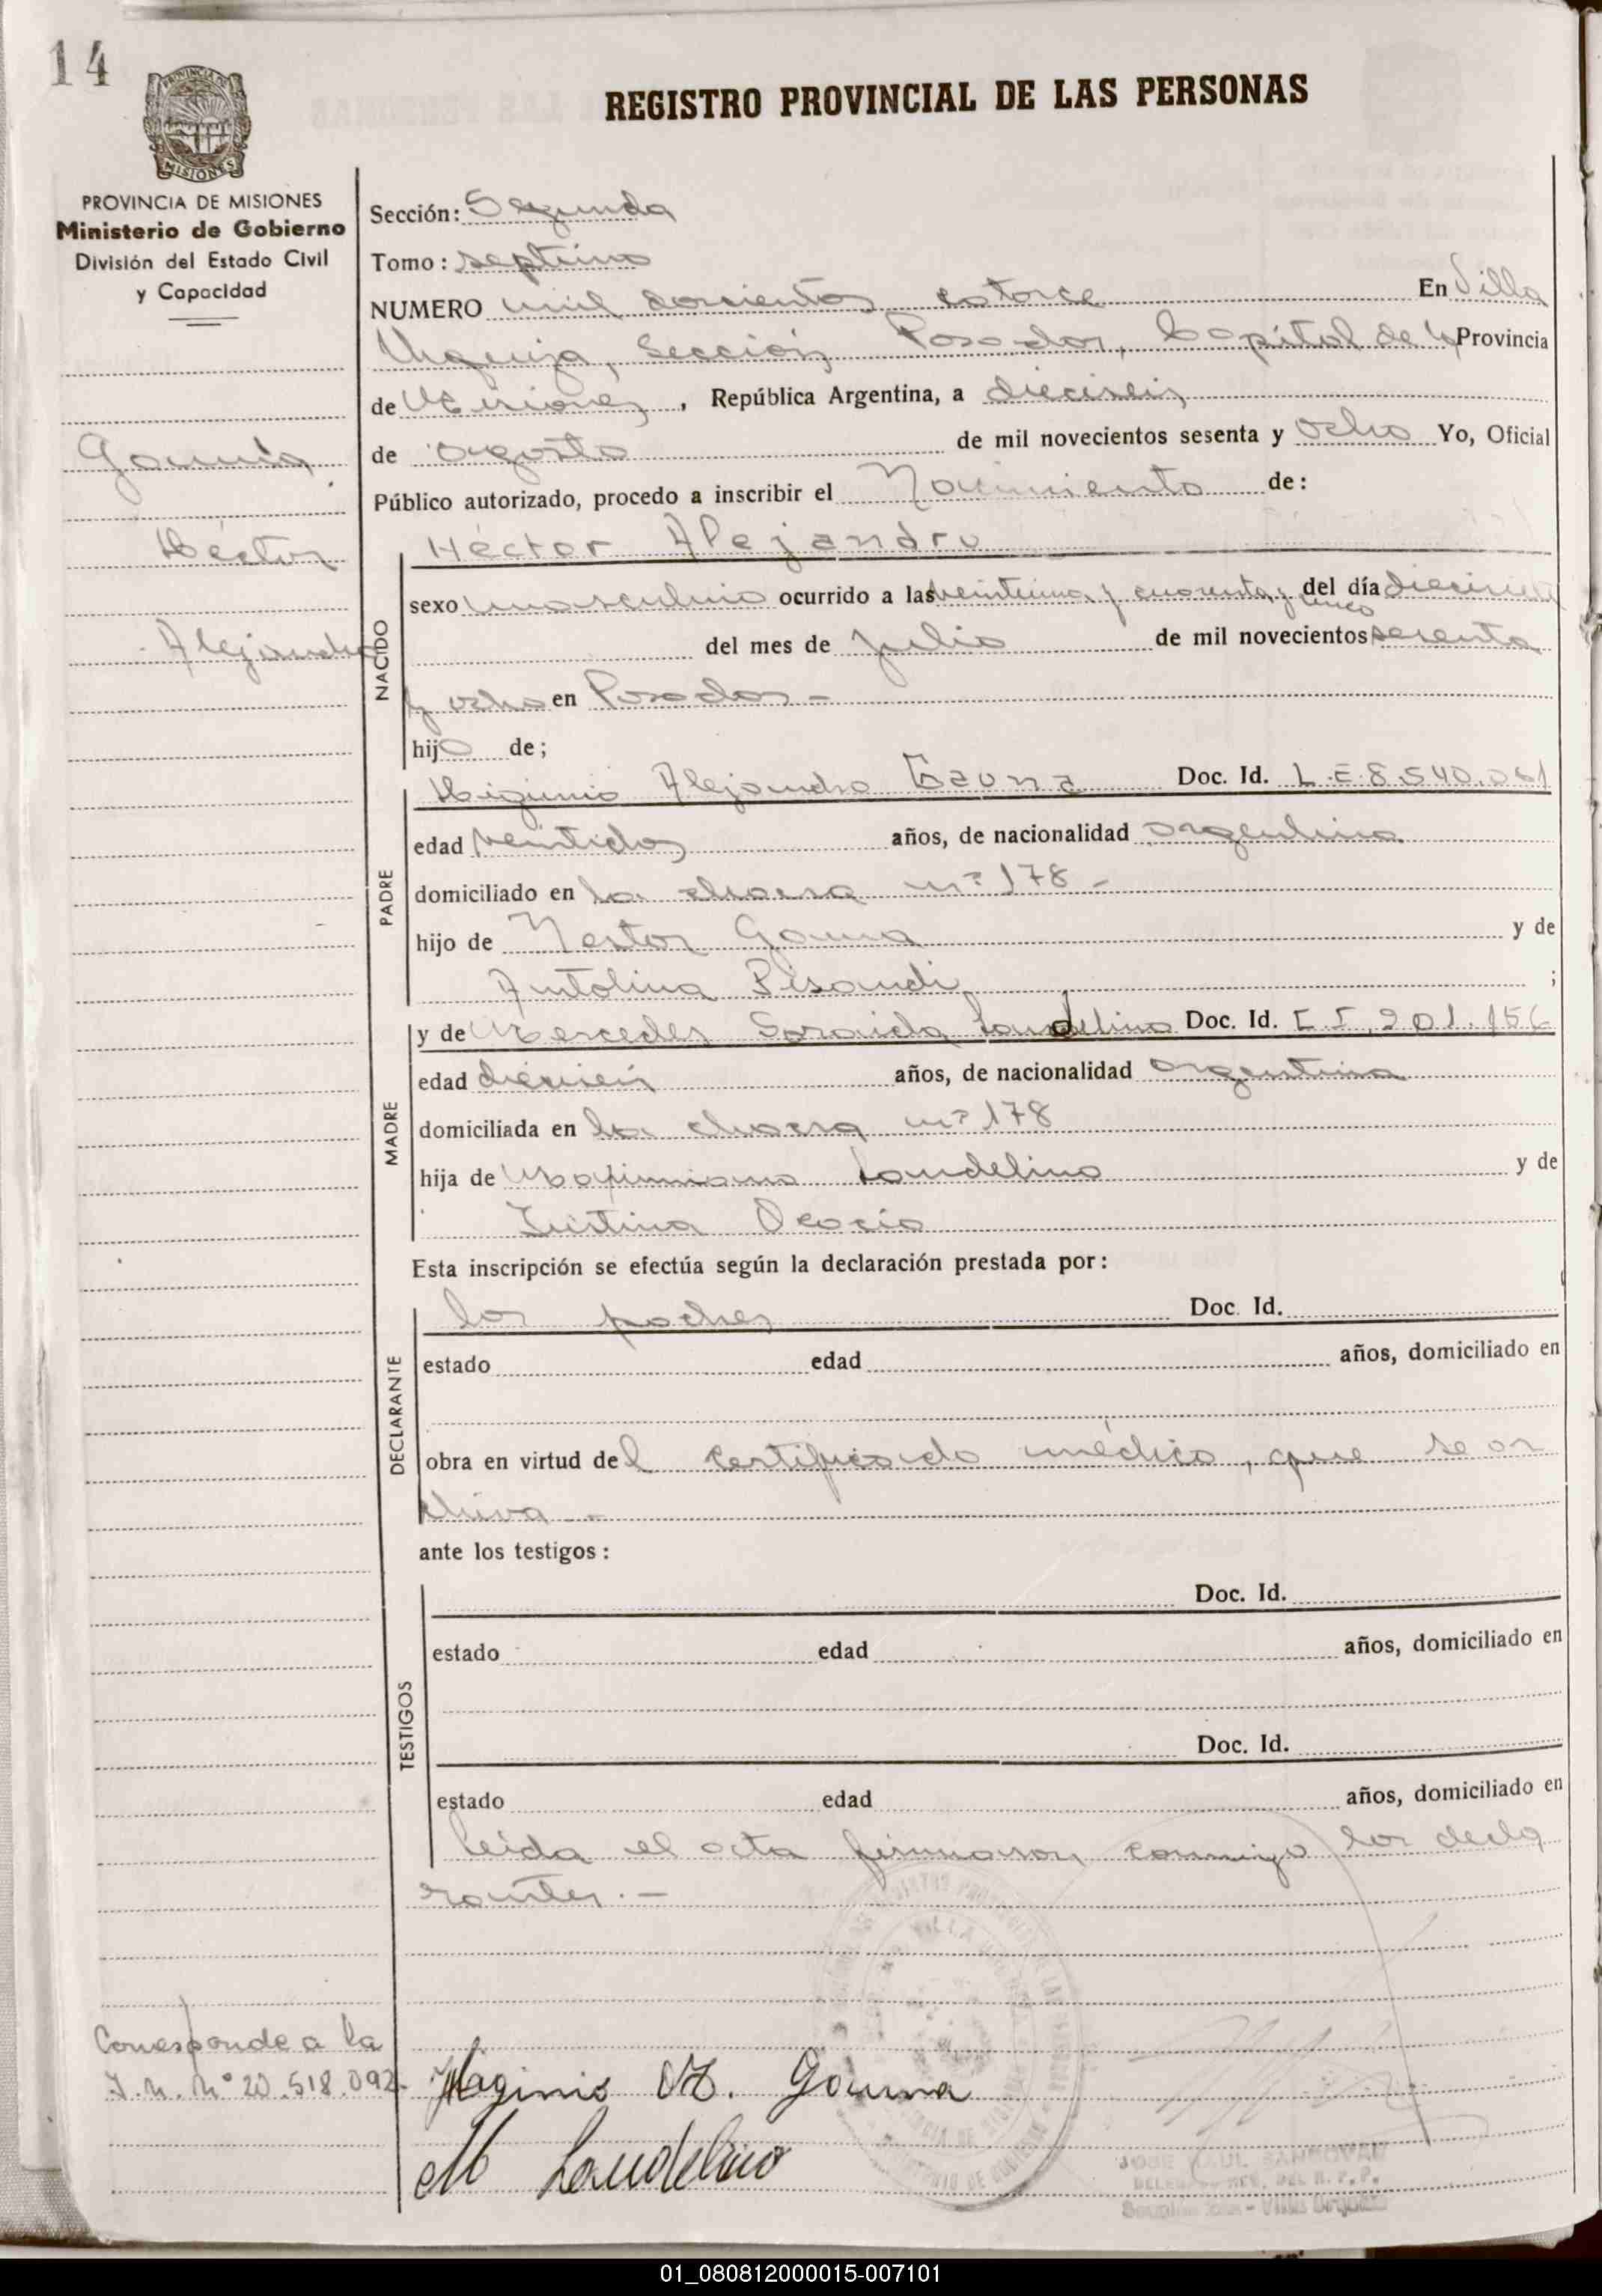 14
REGISTRO PROVINCIAL DE LAS PERSONAS
PROVINCIA DE MISIONES
Ministerio de Gobierno
División del Estado Civil
y Capacidad
Gauna
Héctor
Alejandro
Sección: Segunda
Tomo: septimo
NUMERO mil doscientos catorce En Villa
Urquiza, Sección Posadas, Capital de la Provincia
de Misiones, República Argentina, a dieciseis
de agosto de mil novecientos sesenta y ocho Yo, Oficial
Público autorizado, procedo a inscribir el Nacimiento de:
NACIDO
Héctor Alejandro
sexo masculino ocurrido a las veintiuna y cuarenta y cinco del día diecisiete
del mes de julio de mil novecientos sesenta
y ocho en Posadas -
hijo de;
PADRE
Higinio Alejandro Gauna Doc. Id. L.E 8.540.061
edad veintidos años, de nacionalidad argentino
domiciliado en la chacra nº 178 -
hijo de Nestor Gauna y de
Antolina ;
MADRE
y de Mercedes Landelino Doc. Id. C I. 201.156
edad dieciseis años, de nacionalidad argentina
domiciliada en la chacra nº 178
hija de Maximiano Landelino y de
Esta inscripción se efectúa según la declaración prestada por:
DECLARANTE
los padres Doc. Id.
estado edad años, domiciliado en
obra en virtud del certificado médico, que se ar
chiva -
ante los testigos:
TESTIGOS
Doc. Id.
estado edad años, domiciliado en
Doc. Id.
estado edad años, domiciliado en
Leida el acta firmaron conmigo los decla
rantes. -
Corresponde a la
I.M. Nº 20.518.092-
Higinio A. Gauna
M Landelino
JOSE RAUL SANDOVAL
01_080812000015-007101